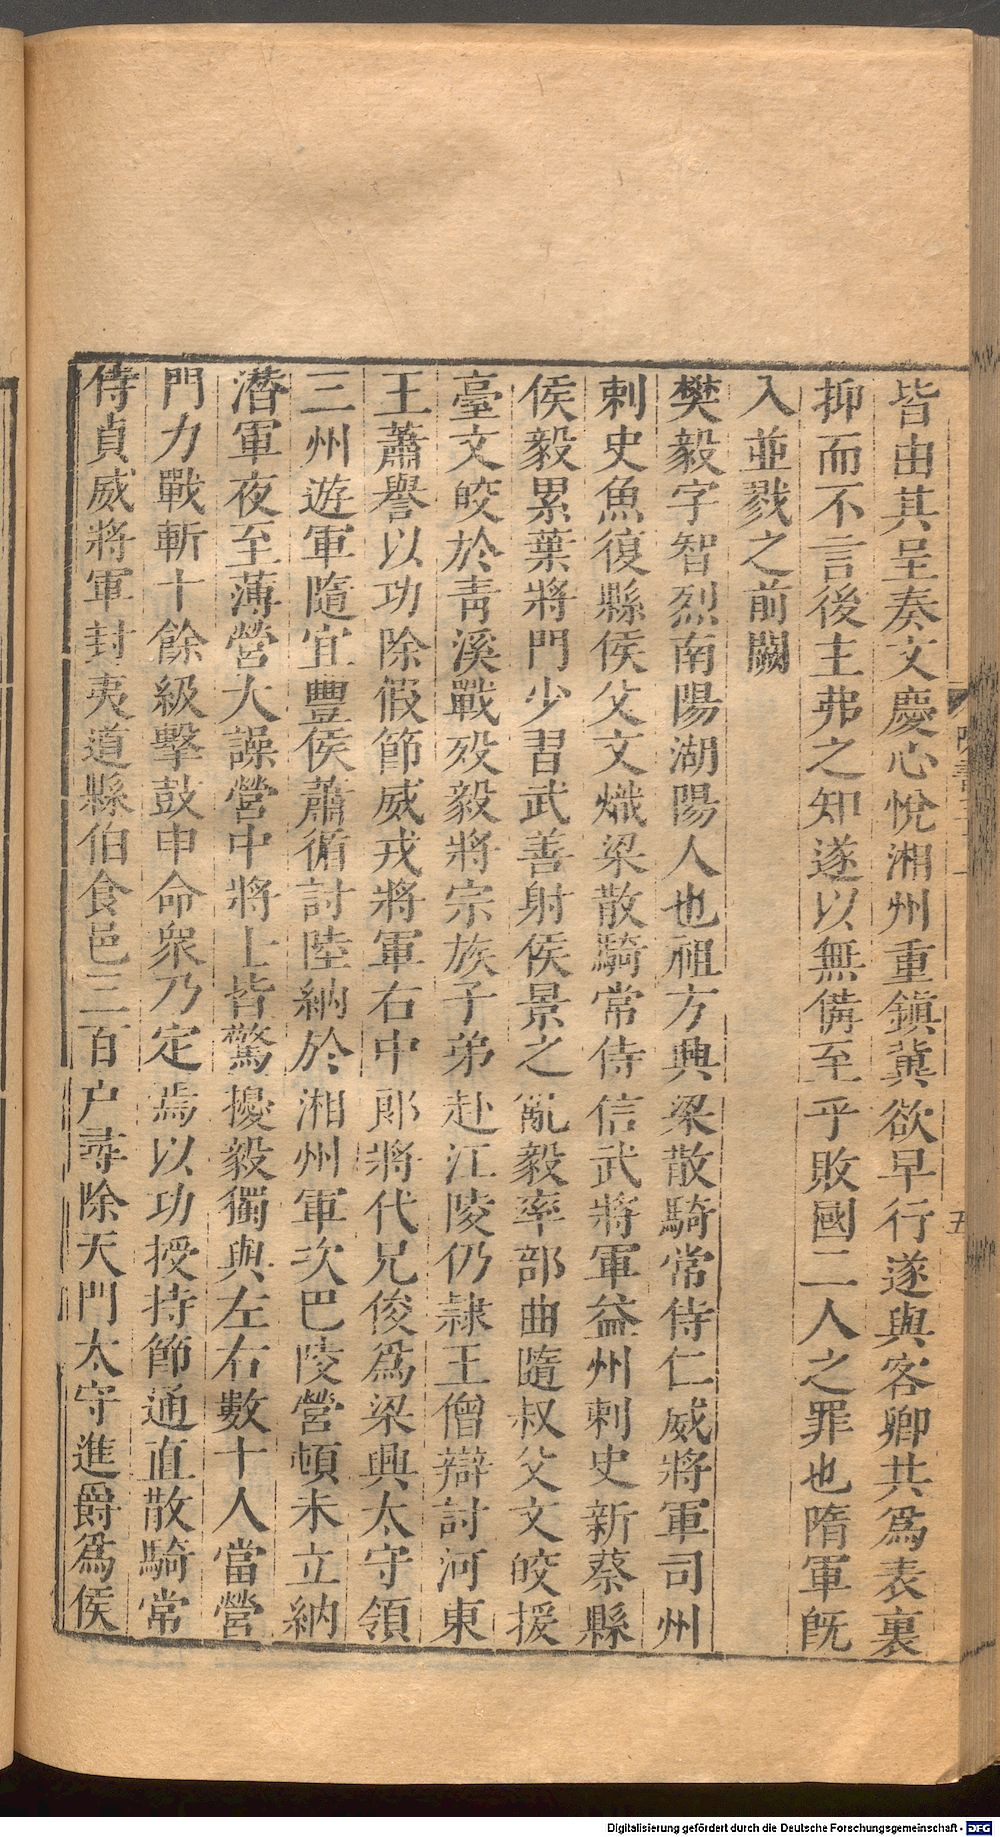 皆由其呈奏文慶心悅湘州重鎮冀欲早行遂與客卿共爲表裏
抑而不言後主弗之知遂以無備至乎敗國二人之罪也隋軍旣
入並戮之前闕
樊毅字智烈南陽湖陽人也祖方興梁散騎常侍仁威將軍司州
刺史魚復縣侯父文熾梁散騎常侍信武將軍益州刺史新蔡縣
侯毅累葉將門少習武善射侯景之亂毅率部曲隨叔父文皎援
臺文皎於靑溪戰歿毅將宗族子弟赴江陵仍隸王僧辯討河東
王蕭譽以功除假節威戎將軍右中郎將代兄俊爲梁興太守領
三州遊軍隨宜豐侯蕭循討陸納於湘州軍次巴陵營頓未立納
潛軍夜至薄營大譟營中將士皆驚擾毅獨與左右數十人當營
門力戰斬十餘級擊鼓申命衆乃定焉以功授持節通直散騎常
侍貞威將軍封夷道縣伯食邑三百户尋除天門太守進爵爲侯
五
Digitalisierung gefördert durch die Deutsche Forschungsgemeinschaft - DFG